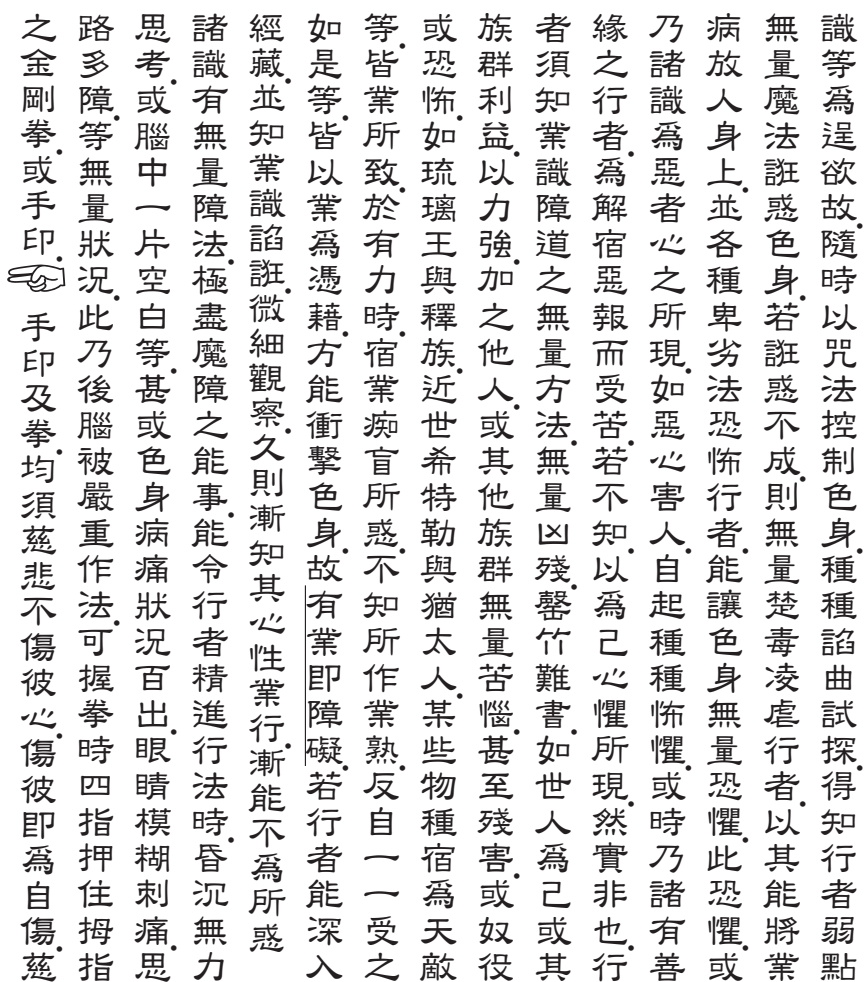 識等爲逞欲故.隨時以咒法控制色身.種種諂曲試探.得知行者弱點
無量魔法誑惑色身.若誑惑不成.則無量楚毒凌虐行者.以其能將業
病放人身上.並各種卑劣法恐怖行者.能讓色身無量恐懼.此恐懼.或
乃諸識爲惡者心之所現.如惡心害人.自起種種怖懼.或時乃諸有善
緣之行者.爲解宿惡報而受苦.若不知.以爲己心懼所現.然實非也.行
者須知業識障道之無量方法.無量凶殘.罄竹難書.如世人爲己或其
族群利益.以力強加之他人.或其他族群無量苦惱.甚至殘害.或奴役
或恐怖.如琉璃王與釋族.近世希特勒與猶太人.某些物種宿爲天敵
等.皆業所致.於有力時.宿業痴盲所惑.不知所作業熟.反自一一受之
如是等.皆以業爲憑藉.方能衝擊色身.故有業即障礙.若行者能深入
經藏.並知業識諂誑.微細觀察.久則漸知其心性業行.漸能不爲所惑
諸識有無量障法.極盡魔障之能事.能令行者精進行法時.昏沉無力
思考.或腦中一片空白等.甚或色身病痛狀況百出.眼睛模糊刺痛.思
路多障.等無量狀況.此乃後腦被嚴重作法.可握拳時四指押住拇指
之金剛拳.或手印.☜手印及拳.均須慈悲不傷彼心.傷彼即爲自傷.慈